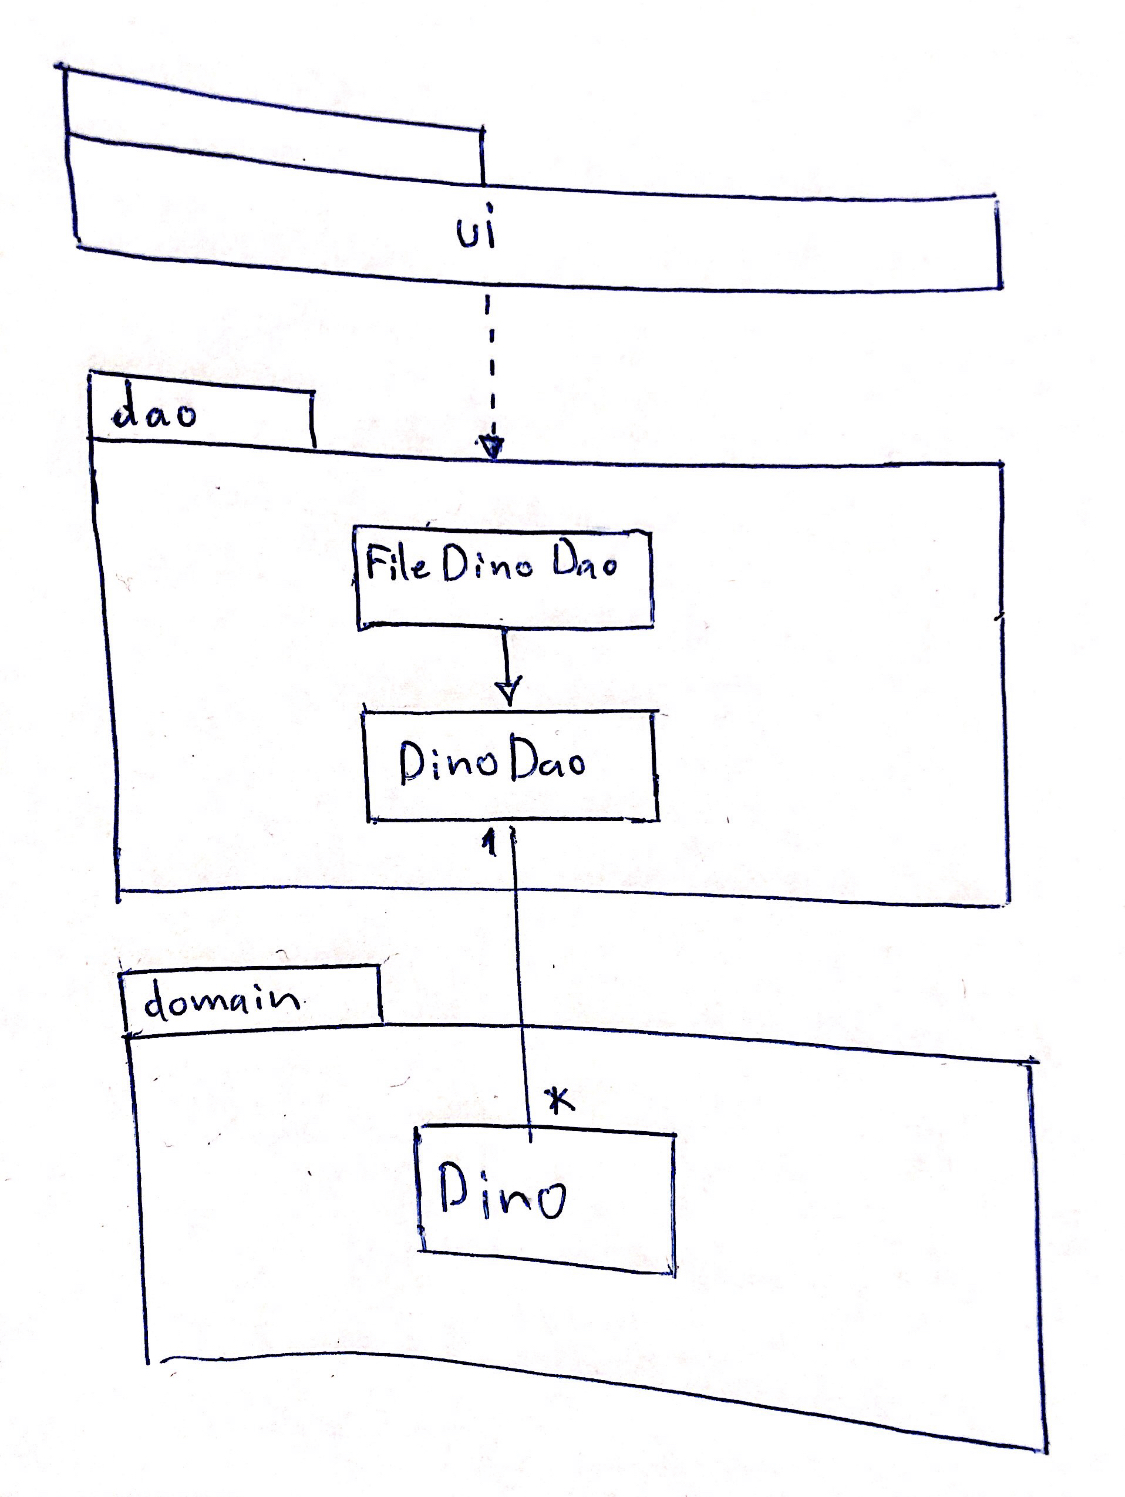 ui
dao
FileDinoDao
DinoDao
1
domain
*
Dino